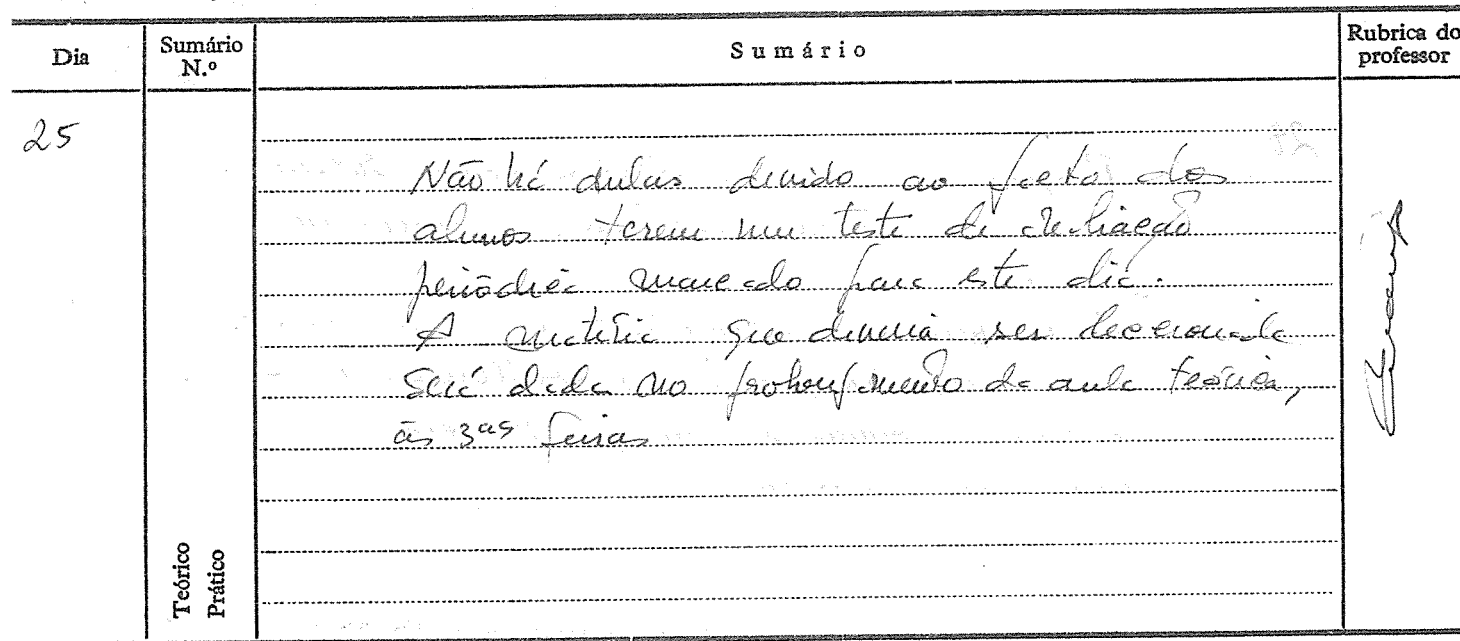 Dia
Sumário N.º
Sumário
Rubrica do professor
25
Não há aulas devido ao facto dos
alunos terem um teste de avaliação
periódica marcado para este dia.
A matéria que deveria ser leccionada
será dada no prolongamento da aula teórica,
às 3as feiras
Teórico
Prático